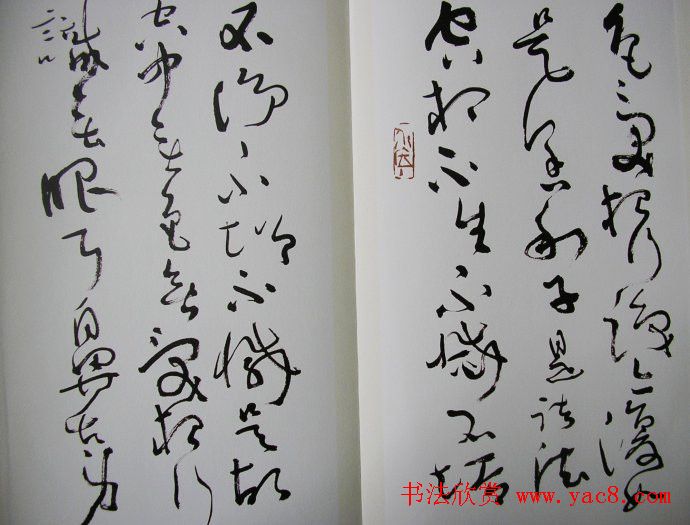 色受想行識亦復如
是舍利子是諸法
空相不生不滅不垢
不淨不增不減是故
空中無色無受想行
識無眼耳鼻舌身
书法欣赏 www.yac8.com